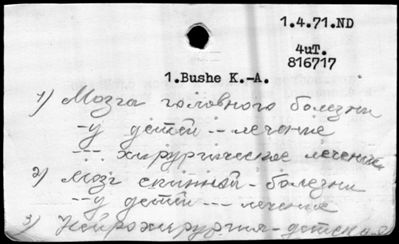 1.4.71.ND
4uT.
816717
1.Bushe K.-A.
1) Мозга головного болезни
-у детей -- лечение
--- хирургическое лечение
2) Мозг спинной - болезни
--у детей --- лечение
3) Нейрохирургия - детская